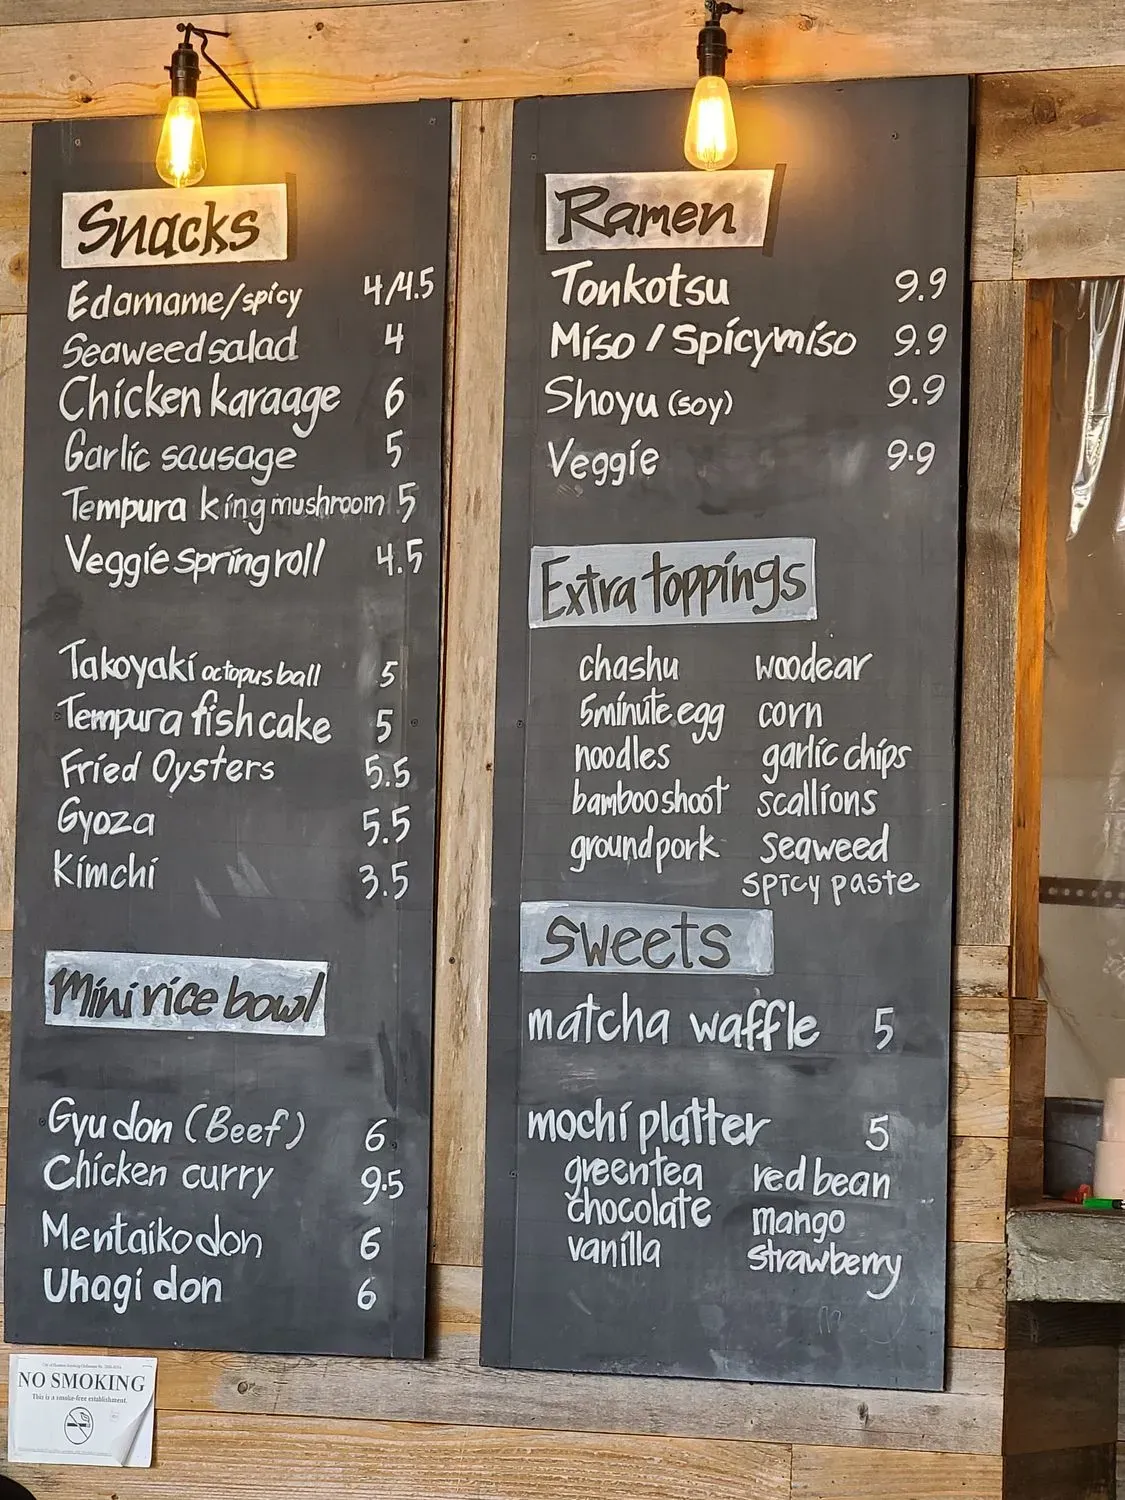 Snacks
Edamame/spicy 4/4.5
Seaweed salad 4
Chicken karaage 6
Garlic sausage 5
Tempura king mushroom 5
Veggie spring roll 4.5
Takoyaki octopus ball 5
Tempura fish cake 5
Fried Oysters 5.5
Gyoza 5.5
Kimchi 3.5
Mini rice bowl
Gyu don (Beef) 6
Chicken curry 9.5
Mentaiko don 6
Unagi don 6
NO SMOKING
This is a smoke-free establishment.
Ramen
Tonkotsu 9.9
Miso / Spicy miso 9.9
Shoyu (soy) 9.9
Veggie 9.9
Extra toppings
chashu woodear
5minute egg corn
noodles garlic chips
bamboo shoot scallions
ground pork seaweed
spicy paste
Sweets
matcha waffle 5
mochi platter 5
green tea red bean
chocolate mango
vanilla strawberry